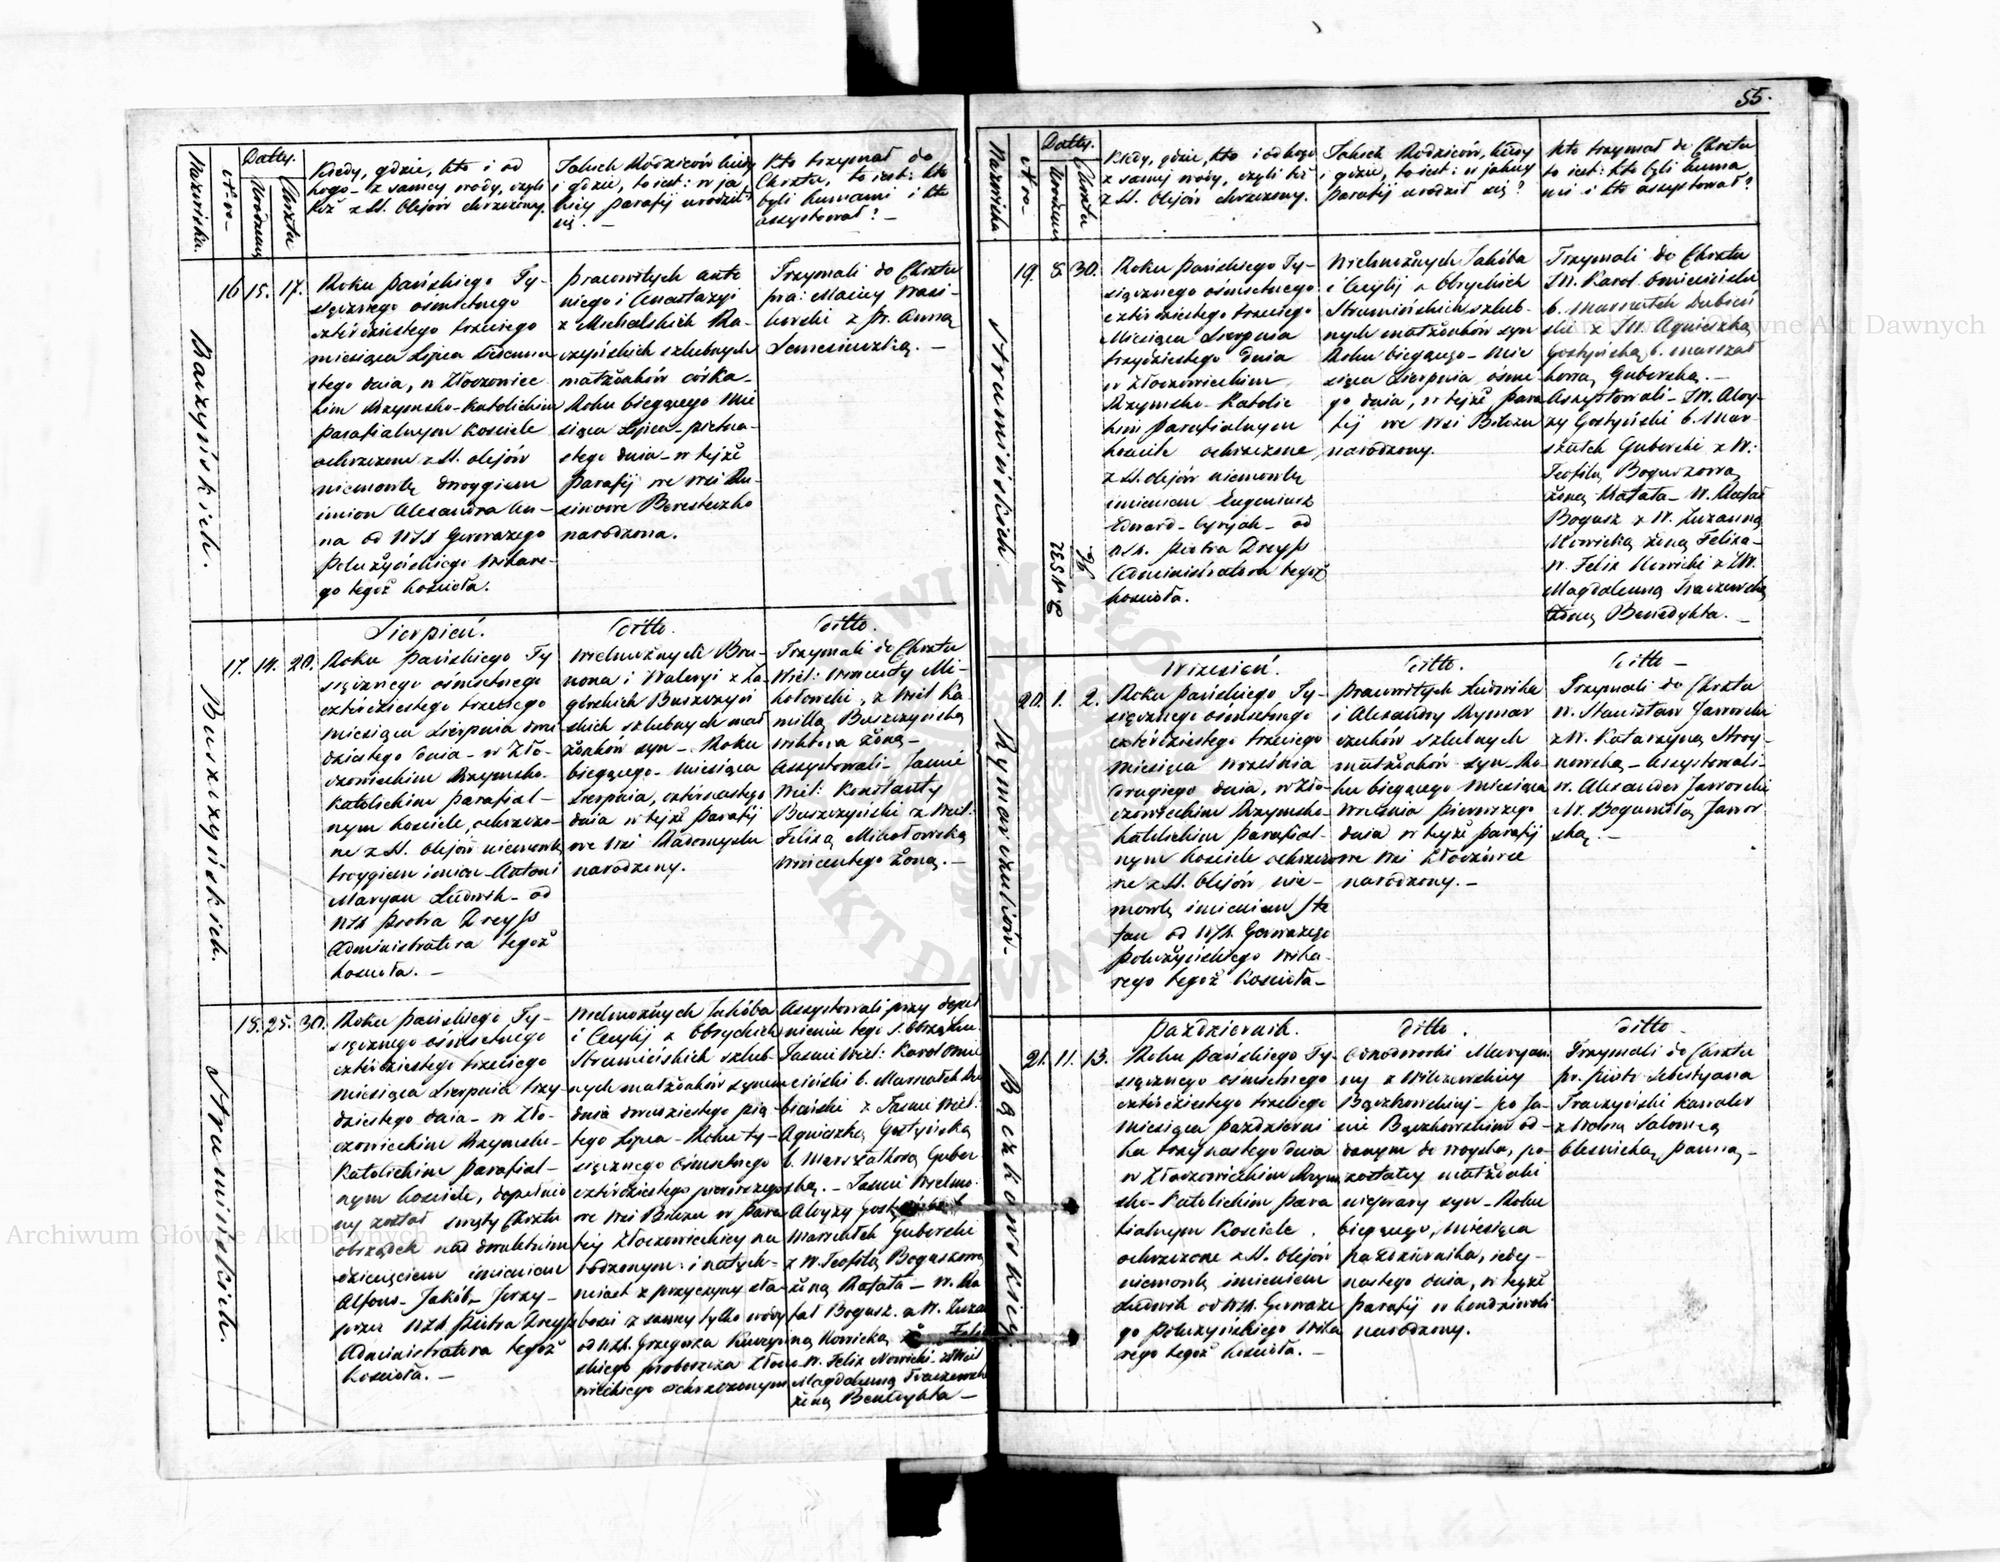 55.
Nazwiska.
Nro.
Datty.
Urodzenia
Chrztu
Kiedy, gdzie, kto i od
kogo z samey wody, czyli
też z SS. Olejów chrzczony.
Jakich Rodziców kiedy
i gdzie, to iest: w ja
kiey parafij urodził
się. —
Kto trzymał do
Chrztu, to iest: kto
byli kumami i kto
assystował? —
Raczyńskich.
16 15. 17.
Roku Pańskiego Ty-
siącznego ośmsetnego
czterdziestego trzeciego
miesiąca Lipca siedemna
stego dnia, w Złoczowiec
kim Rzymsko-Katolickim
parafialnym Kościele
ochrzczone z SS. olejów
niemowlę dwoygiem
imion Alexandra An-
na od WJX Gerwazego
Połużyńskiego Wikare-
go tegoż kościoła.
Pracowitych Anto
niego i Anastazyi
z Michalskich Ra-
czyńskich szlubnych
małżonków córka
Roku bieżącego Mie
siąca Lipca piętna-
stego dnia w tejże
Parafij we wsi
Beresteczko
narodzona.
Trzymali do Chrztu
pra: Maciey Wasi-
kowski z pr. Anną
Buszczyńskich.
Sierpień.
ditto.
ditto.
17. 14. 20.
Roku Pańskiego Ty
siącznego ośmsetnego
czterdziestego trzeciego
miesiąca Sierpnia dwu
dziestego dnia w Zło-
czowieckim Rzymsko-
Katolickim parafial-
nym kościele, ochrzczo-
ne z SS. olejów niemowlę
troygiem imion Antoni
Maryan Ludwik od
WJX Piotra Dreyss
Administratora tegoż
kościoła. —
Wielmożnych Bru-
nona i Waleryi z Za-
górskich Buszczyń
skich szlubnych mał
żonków syn Roku
bieżącego miesiąca
Sierpnia, czternastego
dnia w tejże Parafij
we wsi Radomyslu
narodzony.
Trzymali do Chrztu
Wiel: Wincenty Mi-
chołowski, z Wiel Ka-
millą Buszczyńską
Wiktora żoną
Assystowali Jaśnie
Wiel: Konstanty
Buszczyński z Wiel:
Felixą Michołowską
Wincentego żoną. —
Strumińskich.
18. 25. 30.
Roku Pańskiego Ty-
siącznego ośmsetnego
czterdziestego trzeciego
miesiąca Sierpnia trzy-
dziestego dnia w Zło-
czowieckim Rzymsko-
Katolickim parafial-
nym kościele, dopełnio
ny został święty Chrztu
obrządek nad dwuletnim
dziecięciem imieniem
Alfons Jakób Jerzy
przez WJX. Piotra Dreyss
Administratora tegoż
kościoła. —
Wielmożnych Jakóba
i Cecylij z Obryckich
Strumińskich szlub-
nych małżonków synem
dnia dwudziestego pią
tego Lipca Roku ty-
siącznego ośmsetnego
czterdziestego pierwszego
we wsi Biłczu w para
fij Złoczowieckiey na
rodzonym i natych-
miast z przyczyny sła
bości z samey tylko wody
od WJX. Grzegorza
skiego proboszcza Złoczo
wieckiego ochrzczonym
Assystowali przy dopeł
nieniu tego S. Obrządku
Jaśnie Wiel: Karol Omie
ciński b. Marszałek Du
bieński z Jaśnie Wiel:
Agnieszką Gostyńską
b. Marszałkową Guber
ską. Jaśnie Wielmo:
Aloyzy
Marszałek Guberski
z W. Teofilą Boguszową
żoną Rafała W. Ra
fał Bogusz z W. Zuza
nną Nowicką
W. Felix Nowicki z Wiel
Magdaleną Traczewską
żoną Benedykta —
Nazwiska.
Nro.
Datty.
Urodzenia
Chrztu
Kiedy, gdzie, kto i od kogo
z samej wody, czyli też
z SS. Olejów chrzczony.
Jakich Rodziców, kiedy
i gdzie, to iest: w jakiey
Parafij urodził się?
Kto trzymał do Chrztu
to iest: kto byli kuma
mi i kto assystował?
Strumińskich
19. 8. 30.
Roku Pańskiego Ty-
siącznego ośmsetnego
czterdziestego trzeciego
Miesiąca Sierpnia
trzydziestego dnia
w Złoczowieckim
Rzymsko-Katolic
kim Parafialnym
kościele ochrzczone
z SS. olejów niemowlę
imieniem Eugeniusz
Edward Cyryak od
WJX. Piotra Dreyss
Administratora tegoż
kościoła.
Wielmożnych Jakóba
i Cecylij z Obryckich
Strumińskich szlub-
nych małżonków syn
Roku bieżącego Mie
siąca Sierpnia ósme
go dnia, w tejże para
fij we wsi Biłczu
narodzony.
Trzymali do Chrztu
JW. Karol Omieciński
b. Marszałek Dubień
ski z JW. Agnieszką
Gostyńską b. Marszał
kową Guberską. —
Assystowali JW. Aloy-
zy Gostyński b. Mar-
szałek Guberski z W.
Teofilą Boguszową
żoną Rafała W. Rafał
Bogusz z W. Zuzanną
Nowicką żoną Felixa
W. Felix Nowicki z JW.
Magdaleną Traczewską
żoną Benedykta. —
Rymarczuków
Wrzesień.
ditto.
ditto —
20. 1. 2.
Roku Pańskiego Ty-
siącznego ośmsetnego
czterdziestego trzeciego
Miesiąca Września
drugiego dnia, w Zło-
czowieckim Rzymsko-
katolickim parafial-
nym kościele ochrzczo
ne z SS. Olejów nie-
mowlę imieniem Ste
fan od WJX. Gerwazego
Połużyńskiego Wika-
rego tegoż Kościoła
Pracowitych Ludwika
i Alexandry Rymar
czuków szlubnych
małżonków syn Ro
ku bieżącego miesiąca
Września pierwszego
dnia w tejże parafij
we wsi Złoczówce
narodzony. —
Trzymali do Chrztu
W. Stanisław Jaworski
z W. Katarzyną Stroy-
nowską Assystowali
W. Alexander Jaworski
z W. Bogumiłą Jawor
ską —
Bączkowskiey
Październik.
ditto.
ditto —
21. 11. 13.
Roku Pańskiego Ty-
siącznego ośmsetnego
czterdziestego trzeciego
Miesiąca Październi
ka trzynastego dnia
w Złoczowieckim Rzym
sko-Katolickim para
fialnym Kościele
ochrzczone z SS. Olejów
niemowlę imieniem
Ludwik od WJX. Gerwaze
go Połużyńskiego Wika
rego tegoż kościoła. —
Odnodworki Maryan
ny z Wilczewskich
Bączkowskiey po Ja-
nie Bączkowskim od-
danym do woyska, po-
zostałey małżonki
nieprawy syn Roku
bieżącego, miesiąca
października, iedy-
nastego dnia, w tejże
parafij w
narodzony.
Trzymali do Chrztu
pr. Piotr Sebestyana
Traczyński Kawaler
z Wolną Salomeą
Oleśnicką Panną —
Archiwum Główne Akt Dawnych
Archiwum Główne Akt Dawnych